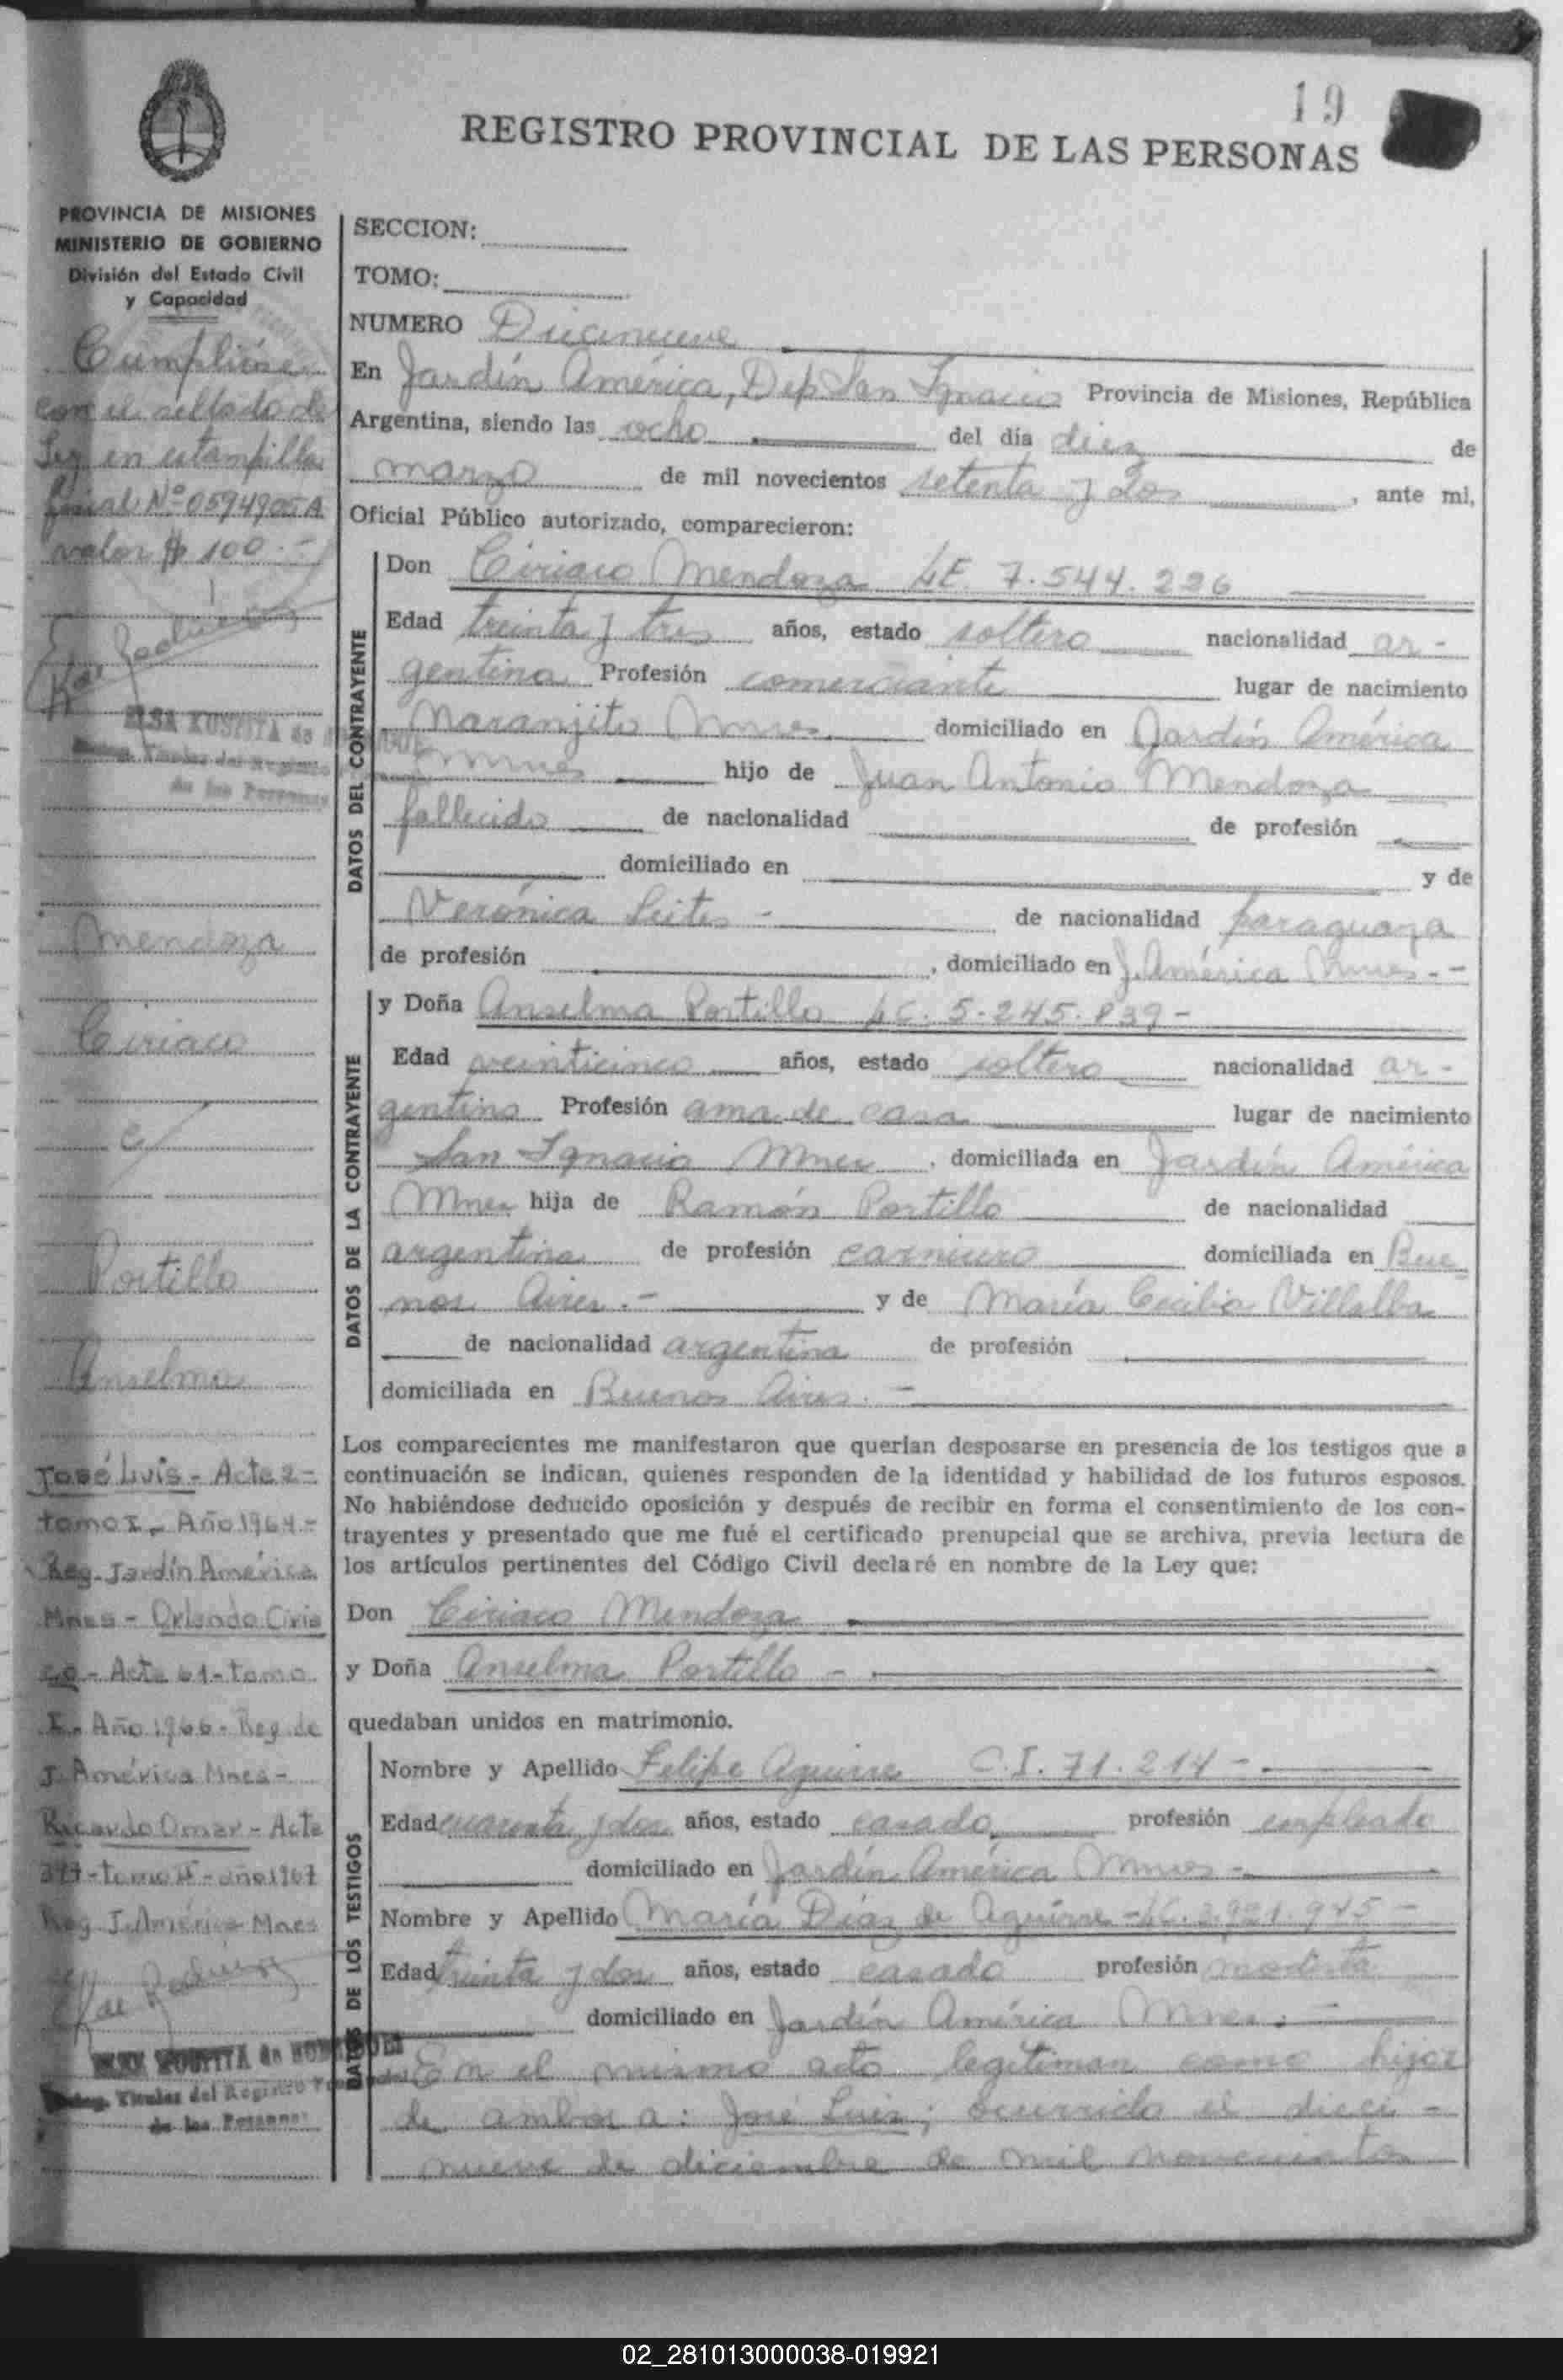 19
REGISTRO PROVINCIAL DE LAS PERSONAS
PROVINCIA DE MISIONES
MINISTERIO DE GOBIERNO
División del Estado Civil
y Capacidad
Cumplióse
con el sellado de
Ley en estampilla
fiscal Nº 0594905 A
valor $ 100.-
ELSA KUSPITA de
Titular del Registro
de las Personas
Mendoza
Ciriaco
c/
Portillo
Anselma
José Luis - Acta 2-
tomo I - Año 1964-
Reg. Jardín América
Mnes - Orlando Ciria
co - Acta 61 - tomo
I - Año 1966 - Reg. de
J. América Mnes -
Ricardo Omar - Acta
377 - tomo II - año 1967
Reg J. América Mnes
Titular del Registro
de las Personas
SECCION:
TOMO:
NUMERO Diecinueve
En Jardín América, Dep San Ignacio Provincia de Misiones, República
Argentina, siendo las ocho del día diez de
marzo de mil novecientos setenta y dos, ante mi,
Oficial Público autorizado, comparecieron:
DATOS DEL CONTRAYENTE
Don Ciriaco Mendoza LE 7.544.226
Edad treinta y tres años, estado soltero nacionalidad ar-
gentina Profesión comerciante lugar de nacimiento
Naranjito Mnes domiciliado en Jardín América
Mnes hijo de Juan Antonio Mendoza
fallecido de nacionalidad de profesión
domiciliado en y de
Verónica Leites - de nacionalidad paraguaya
de profesión , domiciliado en J. América Mnes.-
DATOS DE LA CONTRAYENTE
y Doña Anselma Portillo LC. 5.245.839-
Edad veinticinco años, estado soltera nacionalidad ar-
gentina Profesión ama de casa lugar de nacimiento
San Ignacio Mnes, domiciliada en Jardín América
Mnes hija de Ramón Portillo de nacionalidad
argentina de profesión carnicero domiciliada en Bue
nos Aires.- y de María Cecilia Villalba
de nacionalidad argentina de profesión
domiciliada en Buenos Aires.-
Los comparecientes me manifestaron que querían desposarse en presencia de los testigos que a
continuación se indican, quienes responden de la identidad y habilidad de los futuros esposos.
No habiéndose deducido oposición y después de recibir en forma el consentimiento de los con-
trayentes y presentado que me fué el certificado prenupcial que se archiva, previa lectura de
los artículos pertinentes del Código Civil declaré en nombre de la Ley que:
Don Ciriaco Mendoza
y Doña Anselma Portillo -
quedaban unidos en matrimonio.
DATOS DE LOS TESTIGOS
Nombre y Apellido Felipe Aguirre C.I. 71.214-
Edad cuarenta y dos años, estado casado profesión empleado
domiciliado en Jardín América Mnes-
Nombre y Apellido María Díaz de Aguirre - LC. 2.921.945-
Edad treinta y dos años, estado casado profesión modista
domiciliado en Jardín América Mnes.-
En el mismo acto legitiman como hijos
de ambos a: José Luis; ocurrido el dieci-
nueve de diciembre de mil novecientos
02_281013000038-019921